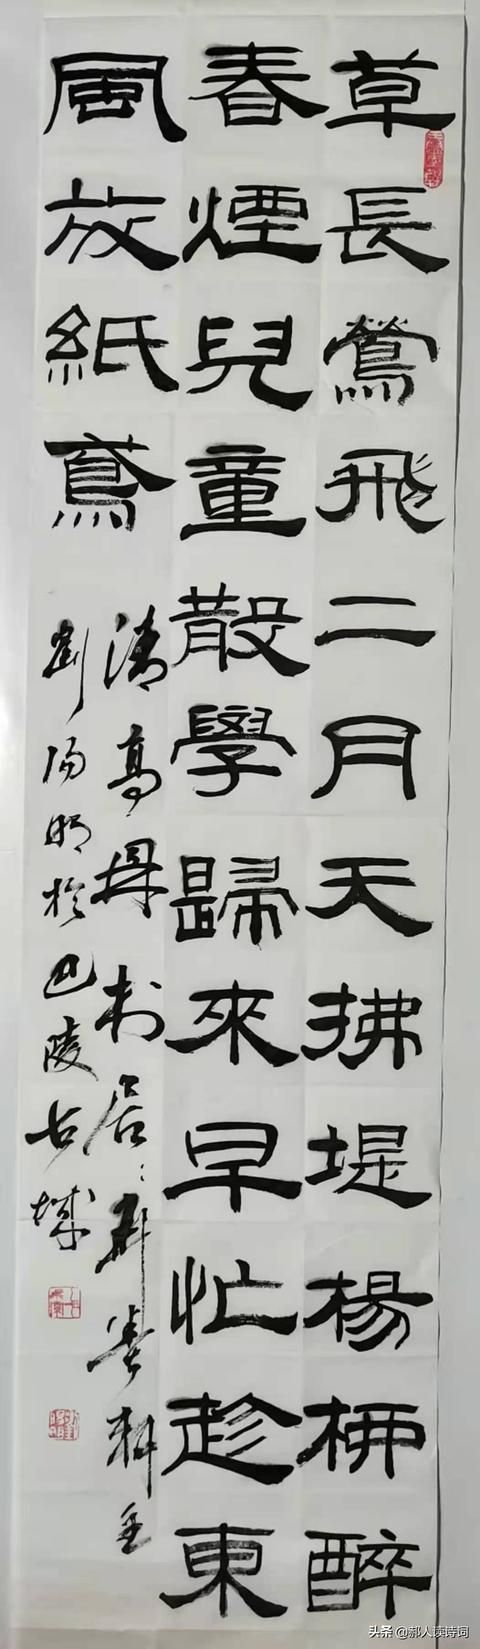 草長鶯飛二月天拂堤楊柳醉
春煙兒童散學歸來早忙趁東
風放紙鳶
清高鼎村居
劉陽明於巴陵古城
头条 @郝人读诗词